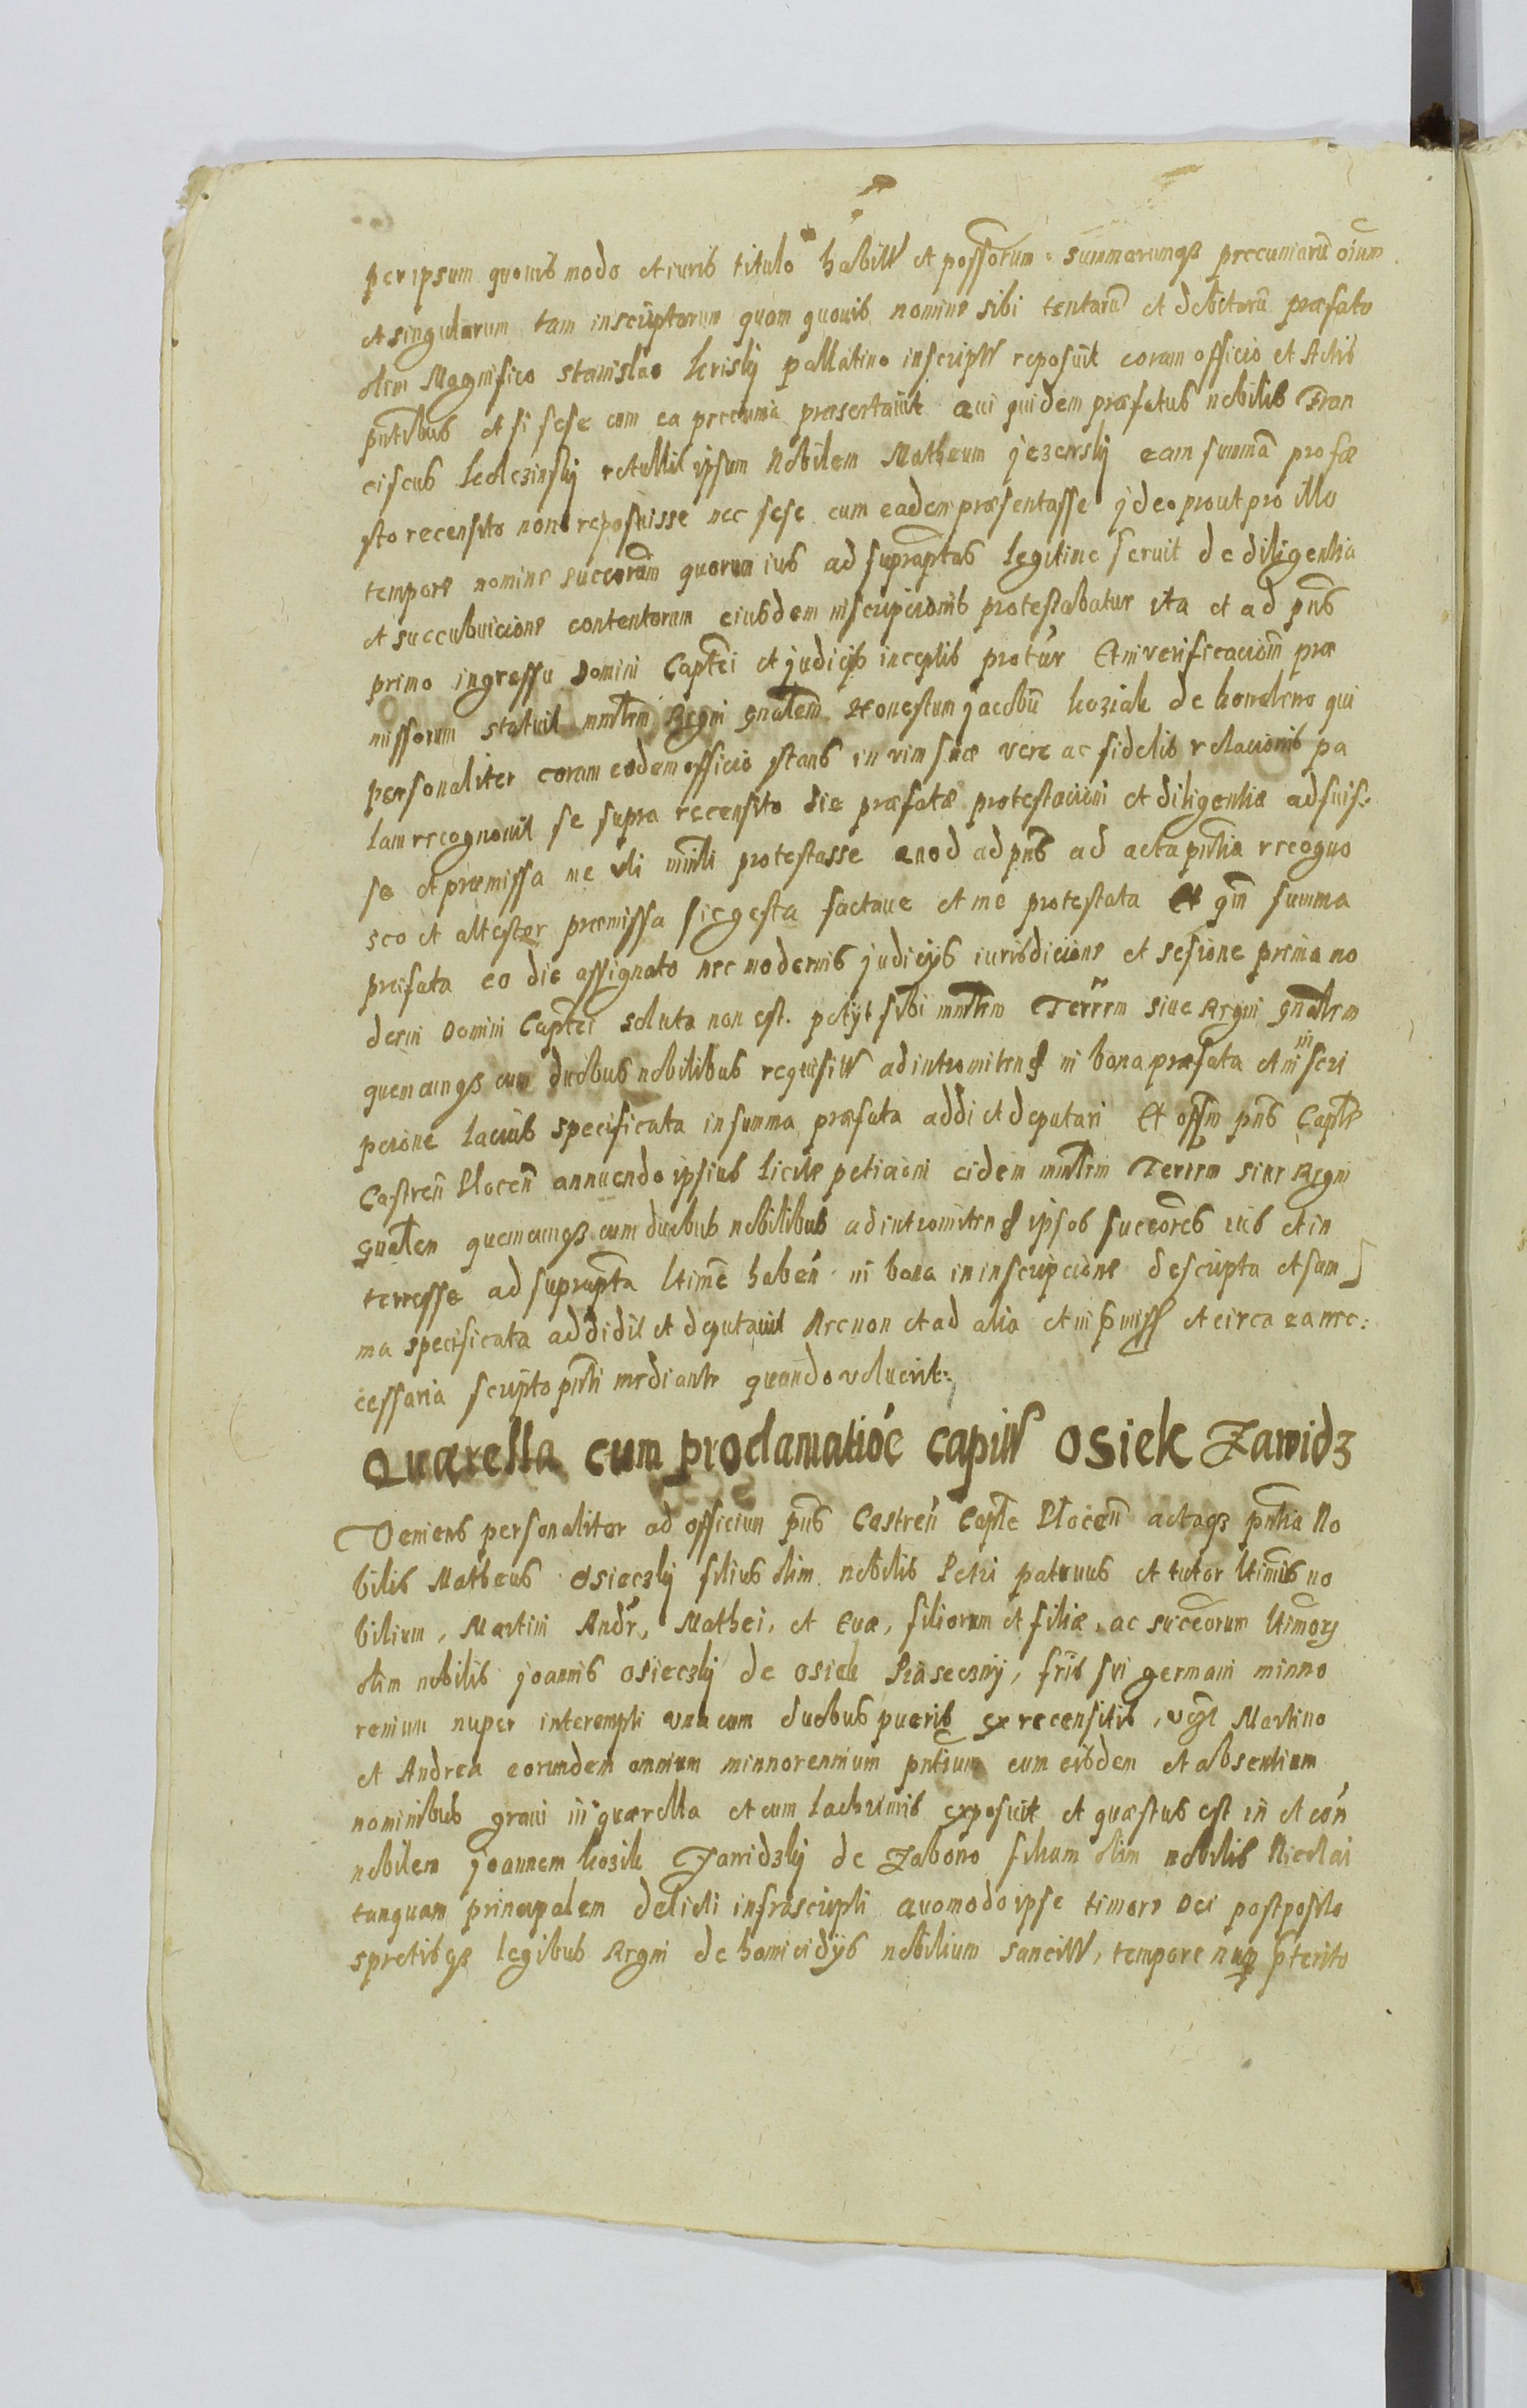 per ipsum quovis modo et iuris titulo habitt et possorum summarumqз peccuniarũ oium
et singularum tam inscriptarum quam quovis nomine sibi tentarũ et debitarũ præfato
olim Magnifico Stanislao Krisky pallatino inscriptt reposuit coram officio et Actis
pntibus et si sese cum ea peccunia præsentavit Qui quidem præfatus nobilis Fran
ciscus retullit ipsum Nobilem Matheum jezersky eam summã pro fæ
sto recensito non reposuisse nec sese cum eadem præsentasse jdeo prout pro illo
tempore nomine succorum quorum ius ad suprapta legitime seruit de diligentia
et succubuicione contentorum eiusdem inscripcionis protestabatur ita et ad pns
primo ingressu Domini Captei et judicijs inceptis protur Et in verificaciom præ
missorum statuit mnlrem Regni gnalem Honestum jacobũ koziak de qui
personaliter coram eodem officio stans in vim suæ vere ac fidelis relacionis pa
lam recognouit se supra recensito die præfatæ protestacioni et diligentiæ adfuis:
se et præmissa ne vli mnli protestasse Quod ad pns ad acta pntia recogno
sco et attestor præmissa sic gesta factaue et me protestata Et qm summa
præfata eo die assignato nec modernis judicijs iurisdicione et sesione prima mo
derni Domini Captei soluta non est. petijt sibi mnlrem Terrem siue Regni gnalem
quemcunqз cum duobus nobilibus requisitt ad intromitend in bona præfata et in inscri
pcione lacius specificata in summa præfata addi et deputari Et offm pns Capte
Castren Plocen annuendo ipsius licite peticioni eidem mnlrem Terrem siue Regni
gnalem quemcunqз cum duobus nobilibus ad intromitend ipsos succores ius et in
teresse ad suprapta ltime haben in bona in inscripcione descripta et sum
ma specificata addidit et deputauit Necnon et ad alia et in pmiss et circa ea nec:
cessaria scripto pnti mediante quando voluerit:
Quærella cum proclamatioe capitt Osiek Zawidz
Veniens personaliter ad officium pns Castren Capte Plocen actaqз pntia No
bilis Matheus Osieczky filius olim nobilis Petri patruus et tutor ltimus no
bilium, Martini Andr, Mathei, et Euæ, filiorum et filiæ, ac succorum ltimorз
olim nobilis joannis Osieczky de Osiek Piaseczny, fris sui germani minno
rennium nuper interempti vna cum duobus pueris ex recensitis, vcзt Martino
et Andrea eorundem omnium minnorennium pntium cum eisdem et absentium
nominibus graui in quærella et cum lachrimis exposuit et quæstus est in et con
nobilem joannem kozik Zawidzky de Zabowo filium olim nobilis Nicolai
tanquam principalem delicti infrascripti Quomodo ipse timore Dei postposito
spretisqз legibus Regni de homicidijs nobilium sancitt, tempore nup pterito